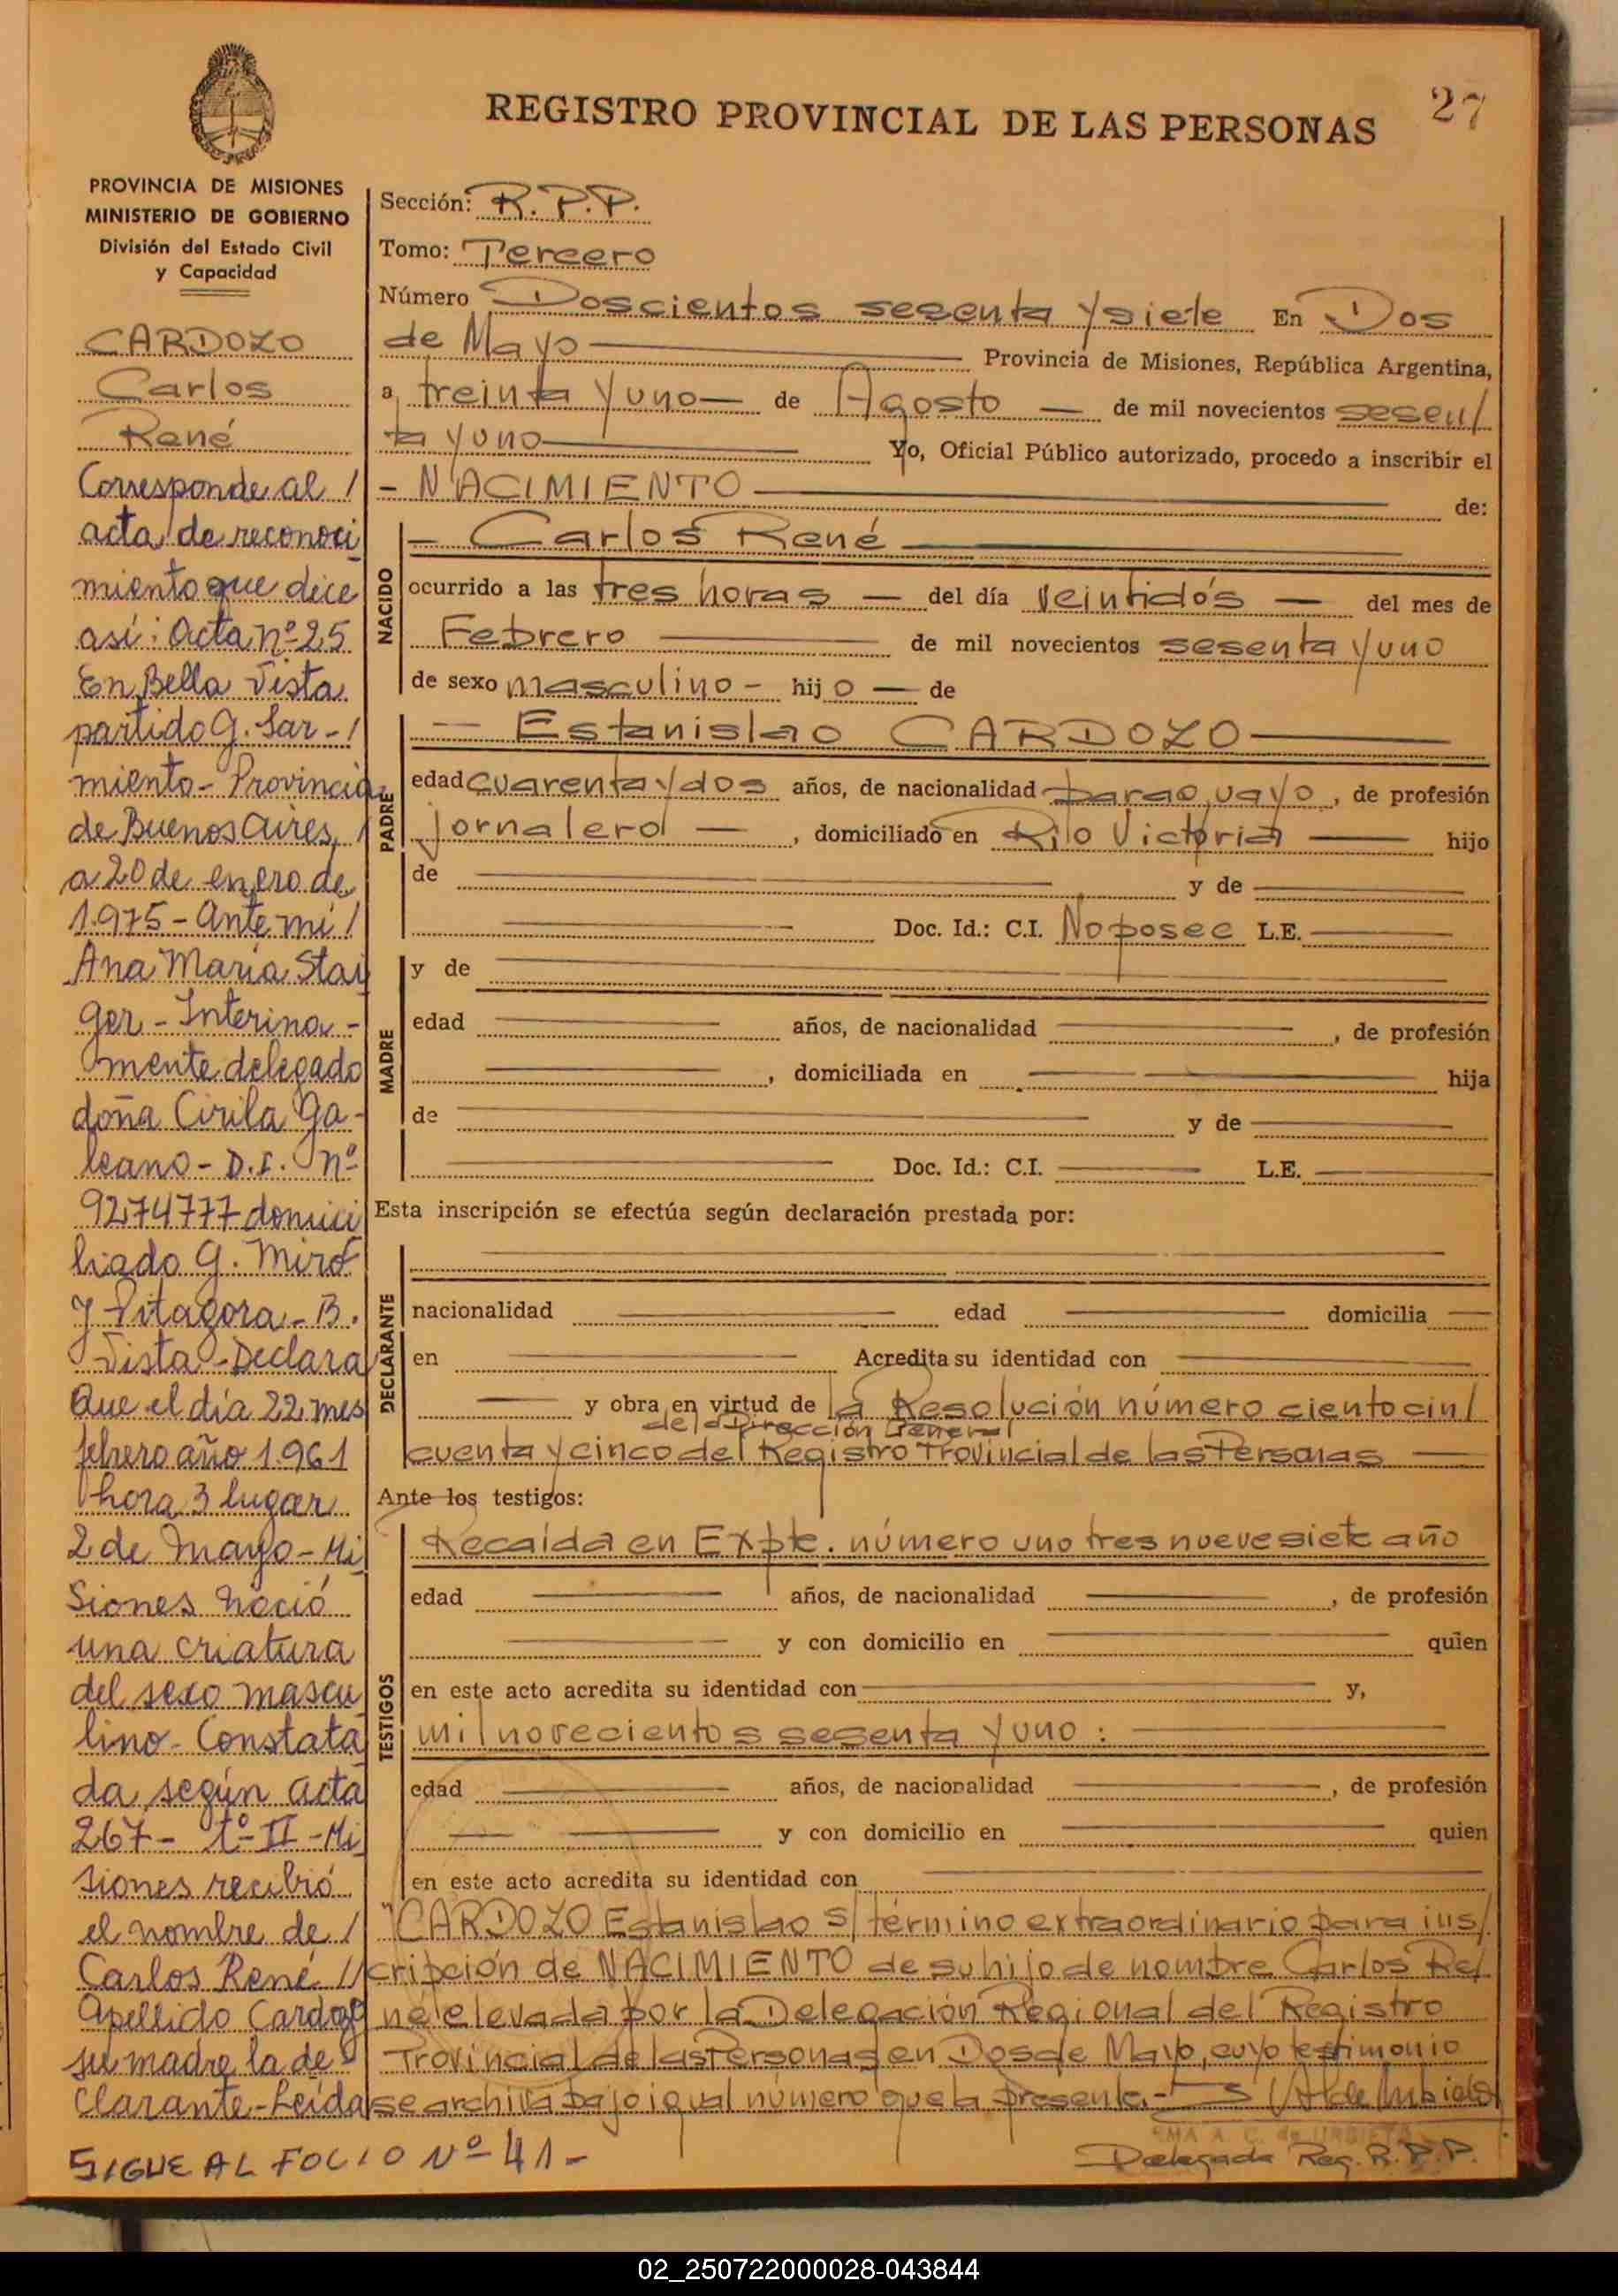 27
REGISTRO PROVINCIAL DE LAS PERSONAS
PROVINCIA DE MISIONES
MINISTERIO DE GOBIERNO
División del Estado Civil
y Capacidad
CARDOZO
Carlos
René
Corresponde al /
acta de reconoci
miento que dice
así: Acta nº 25
En Bella Vista
partido G. Sar-/
miento - Provincia
de Buenos Aires, /
a 20 de enero de
1.975 - Ante mí /
Ana María Stai
ger - Interina-
mente delegado
doña Cirila Ga-
leano - D.I. Nº
9274777 domici
liado G. Miró
y Pitagora - B.
Vista - Declara
Que el día 22 mes
febrero año 1.961
hora 3 lugar
2 de Mayo - Mi
siones nació
una criatura
del sexo mascu
lino - Constata
da según acta
267 - 1º- II - Mi
siones recibió
el nombre de /
Carlos René //
Apellido Cardozo
su madre la de
clarante - Leída
SIGUE AL FOLIO Nº 41 -
Sección: R.P.P.
Tomo: Tercero
Número Doscientos sesenta y siete En Dos
de Mayo Provincia de Misiones, República Argentina,
a treinta y uno de Agosto de mil novecientos sesen/
ta y uno Yo, Oficial Público autorizado, procedo a inscribir el
- NACIMIENTO de:
NACIDO
- Carlos René
ocurrido a las tres horas — del día veintidós — del mes de
Febrero de mil novecientos sesenta y uno
de sexo masculino - hijo — de
PADRE
— Estanislao CARDOZO
edad cuarenta y dos años, de nacionalidad paraguayo, de profesión
jornalero —, domiciliado en Kilo Victoria hijo
de y de
Doc. Id.: C.I. No posee L.E.
MADRE
y de
edad años, de nacionalidad , de profesión
, domiciliada en hija
de y de
Doc. Id.: C.I. L.E.
Esta inscripción se efectúa según declaración prestada por:
DECLARANTE
nacionalidad edad domicilia
en Acredita su identidad con
y obra en virtud de la Resolución número ciento cin/
de la Dirección General
cuenta y cinco del Registro Provincial de las Personas
Ante los testigos:
TESTIGOS
Recaída en Expte. número uno tres nueve siete año
edad años, de nacionalidad , de profesión
y con domicilio en quien
en este acto acredita su identidad con y,
mil novecientos sesenta y uno:
edad años, de nacionalidad , de profesión
y con domicilio en quien
en este acto acredita su identidad con
"CARDOZO Estanislao s/ término extraordinario para ins/
cripción de NACIMIENTO de su hijo de nombre Carlos Re/
né elevada por la Delegación Regional del Registro
Provincial de las Personas en Dos de Mayo, cuyo testimonio
se archiva bajo igual número que la presente.-
Delegada Reg. R.P.P.
02_250722000028-043844